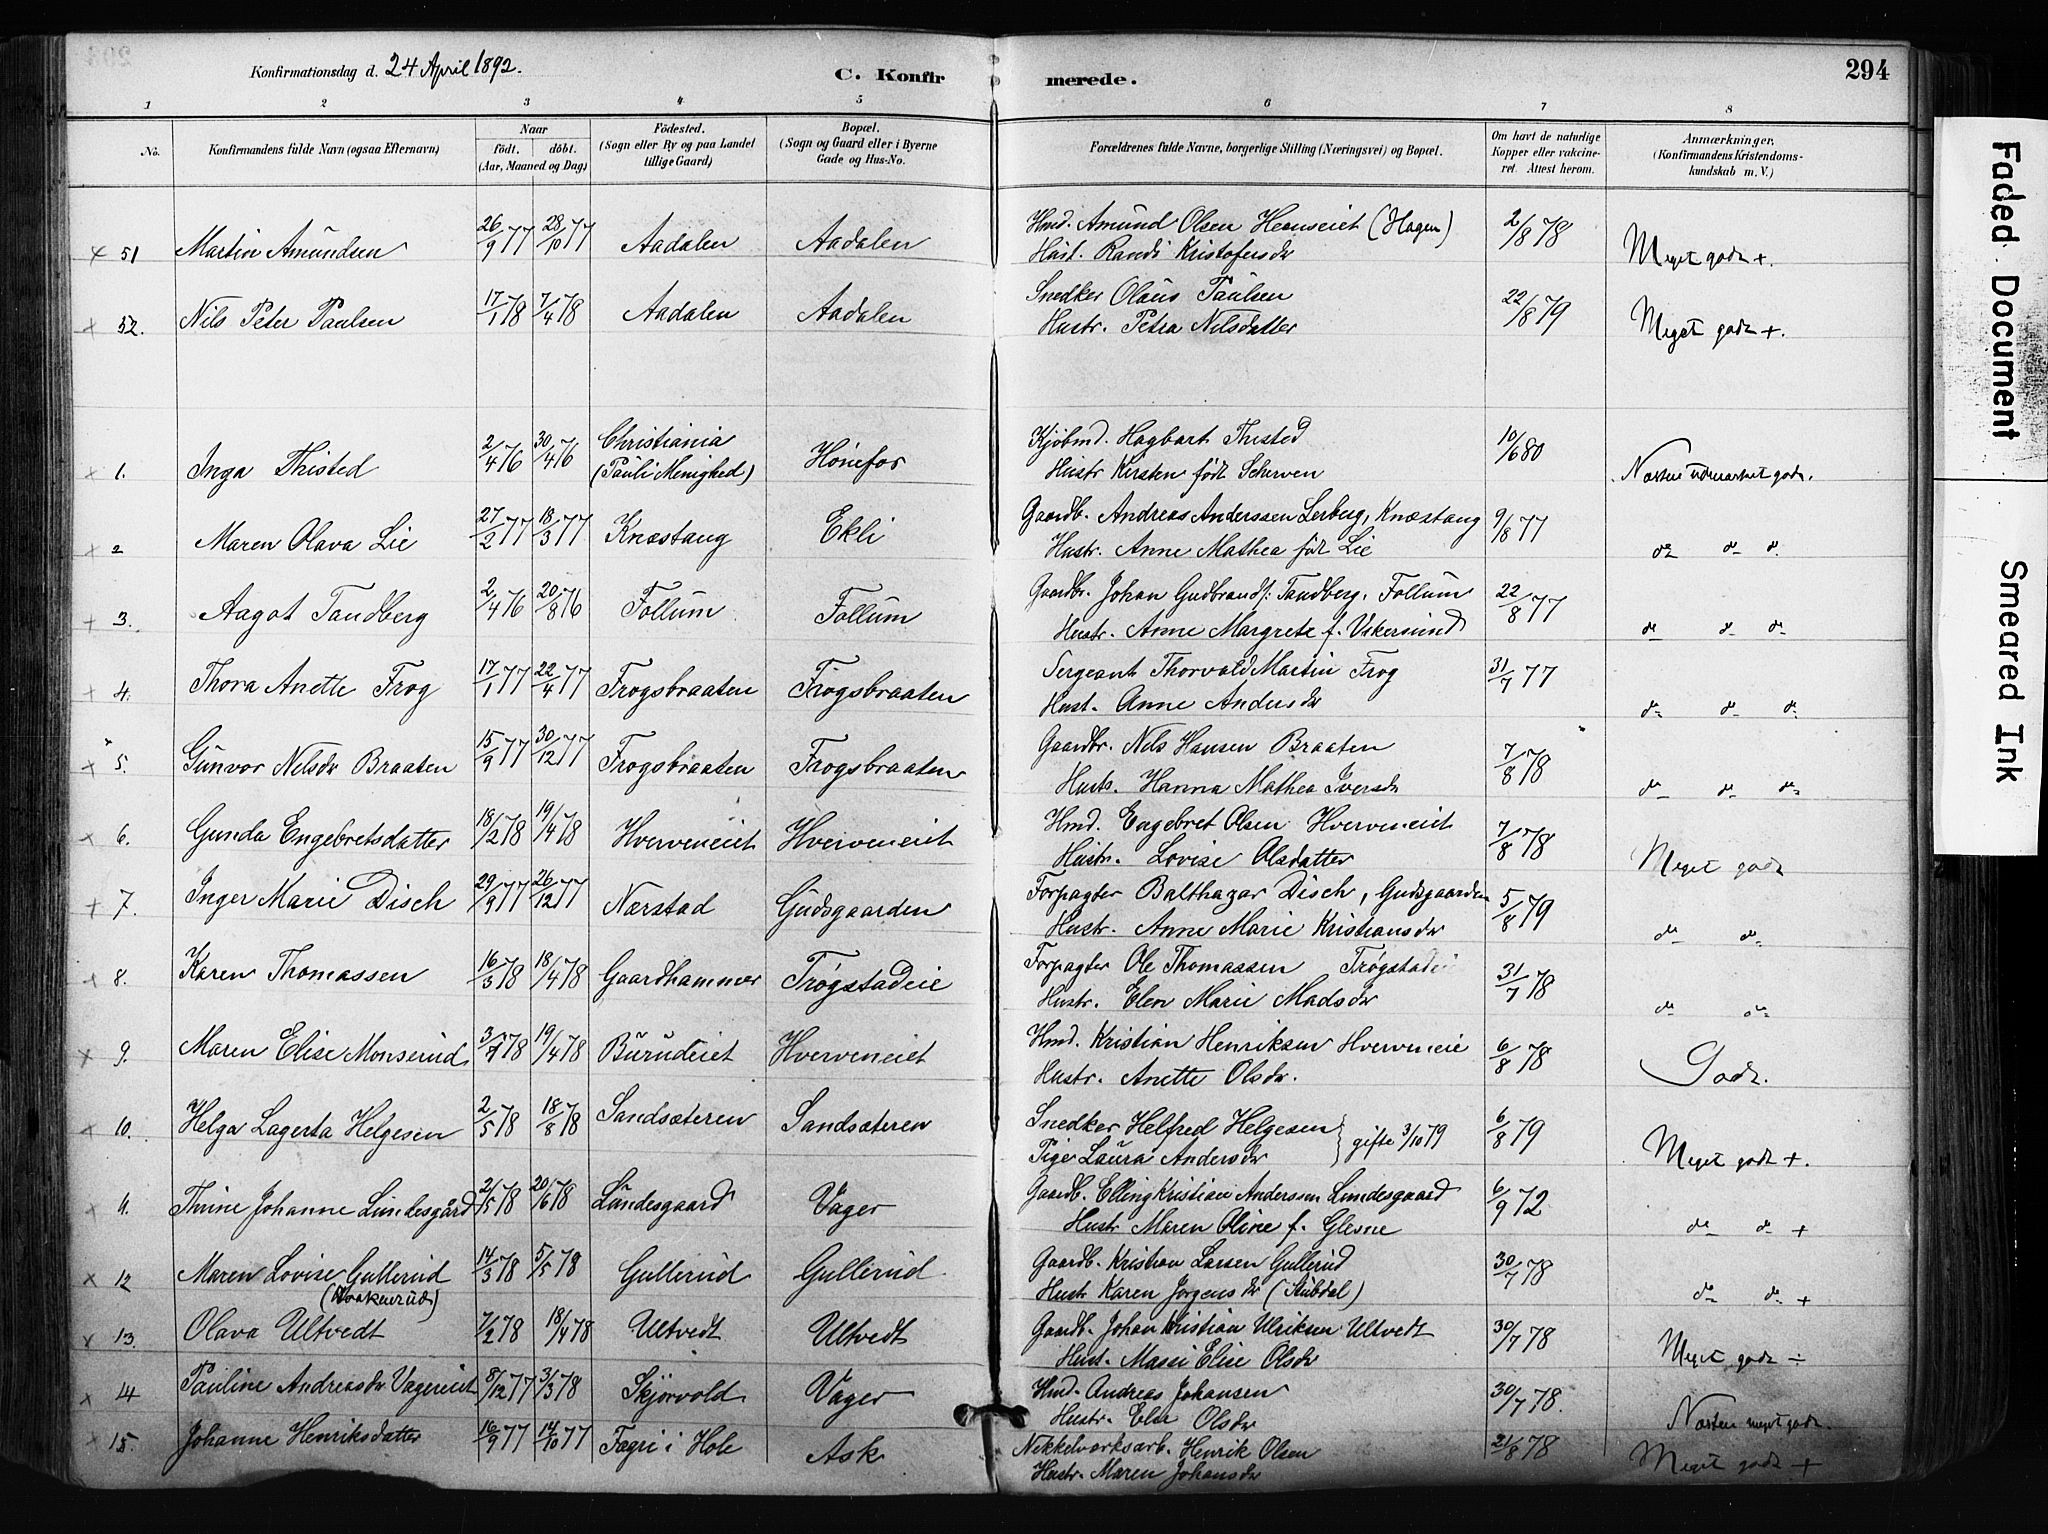 Konfirmationsdag d. 24 April 1892.
C. Konfirmerede.
294
1 2 3 4 5 6 7 8
No.
Konfirmandens fulde Navn (ogsaa Efternavn)
Naar
födt. döbt.
(Aar, Maaned og Dag)
Födested.
(Sogn eller By og paa Landet
tillige Gaard)
Bopæl.
(Sogn og Gaard eller i Byerne
Gade og Hus-No.
Forældrenes fulde Navne, borgerlige Stilling (Næringsvei) og Bopæl.
Om havt de naturlige
Kopper eller vakcine-
ret. Attest herom.
Anmærkninger.
(Konfirmandens Kristendoms-
kundskab m. V.)
x 51 Martin Amundsen 26/9 77 28/10 77 Aadalen Aadalen Hmd. Amund Olsen (Hagen) 2/8 78 Meget godt +.
Hust. Randi Kristofersdr
x 52. Nils Peter Paulsen 17/1 78 7/4 78 Aadalen Aadalen Snedker Olaus Paulsen 22/8 79 Meget godt +.
Hustr. Petra Nilsdatter
x 1. Inga Thisted 2/4 76 30/4 76 Christiania (Pauli Menighed) Hönefos Kjöbmd. Hagbart Thisted 10/6 80 Næsten udmærket godt.
Hustr Kirsten födt Scherven
x 2 Maren Olava Lie 27/2 77 18/3 77 Knæstang Ekli Gaardb. Andreas Anderssen Lerberg, Knæstang 9/8 77 do do do
Hustr. Anne Mathea föt Lie
+ 3. Aagot Tandberg 2/4 76 20/8 76 Follum Follum Gaardbr. Johan Gudbrands: Tandberg, Follum 22/8 77 do do do
Hustr. Anne Margrete f. Vikersund
x 4. Thora Anette Frog 17/1 77 22/4 77 Frogsbraaten Frogsbraaten Sergeant Thorvald Martin Frog 31/7 77 do do do
Hust. Anne Andersdr
x 5. Gunvor Nelsdr Braaten 15/9 77 30/12 77 Frogsbraaten Frogsbraaten Gaardbr. Nels Hansen Braaten 7/8 78 do do do
Hustr. Hanna Mathea Iversdr
x 6. Gunda Engebretsdatter 18/2 78 19/4 78 Hverveneiet Hverveneiet Hmd. Engebret Olsen Hverveneiet 7/8 78 Meget godt
Hustr. Lovise Olsdatter
+ 7. Inger Marie Disch 29/9 77 26/12 77 Nærstad Gudsgaarden Forpagter Balthazar Disch, Gudsgaarden 5/8 79 do do
Hustr. Anne Marie Kristiansdr
x 8. Karen Thomassen 16/3 78 18/4 78 Gaardhammer Trøgstadeie Forpagter Ole Thomassen Trøgstadei 31/7 78 do do
Hustr. Elen Marie Madsdr
x 9. Maren Elise Monserud 78 19/4 78 Burudeiet Hverveneiet Hmd. Kristian Henriksen Hverveneie 6/8 78 Godt.
Hustr. Anette Olsdr.
x 10. Helga Lagerta Helgesen 2/5 78 18/8 78 Sandsæteren Sandsæteren Snedker Helfred Helgesen } gifte 3/10 79 6/8 79 Meget godt +.
Pige Laura Andersdr
x 11. Thine Johanne Lundesgård 2/5 78 20/6 78 Lundesgaard Vager Gaardb. Elling Kristian Anderssen Lundesgaard 6/9 72 do do +
Hustr Maren Oline f. Glesne
x 12 Maren Lovise Gullerud 14/3 78 5/5 78 Gullerud Gullerud. Gaardb. Kristian Larsen Gullerud 30/7 78 do do +
(Vaakenrud) Hustr Karen Jørgensdr (Stubdal)
x 13. Olava Ultvedt 7/2 78 18/4 78 Ultvedt Ultvedt Gaardb. Johan Kristian Ulriksen Ultvedt 30/7 78 Meget godt ÷
Hust. Massi Elise Olsdr
x 14 Pauline Andreasdr Vagereiet 8/12 77 3/3 78 Skjørvold Vager Hmd. Andreas Johansen 30/7 78. Næsten meget godt.
Hustr. Else Olsdr
x 15. Johanne Henriksdatter 16/9 77 14/10 77 Fagri i Hole Ask Nikkelværksarb. Henrik Olsen 21/8 78 Meget godt +
Hustr. Maren Johansdr
Faded Document
Smeared Ink